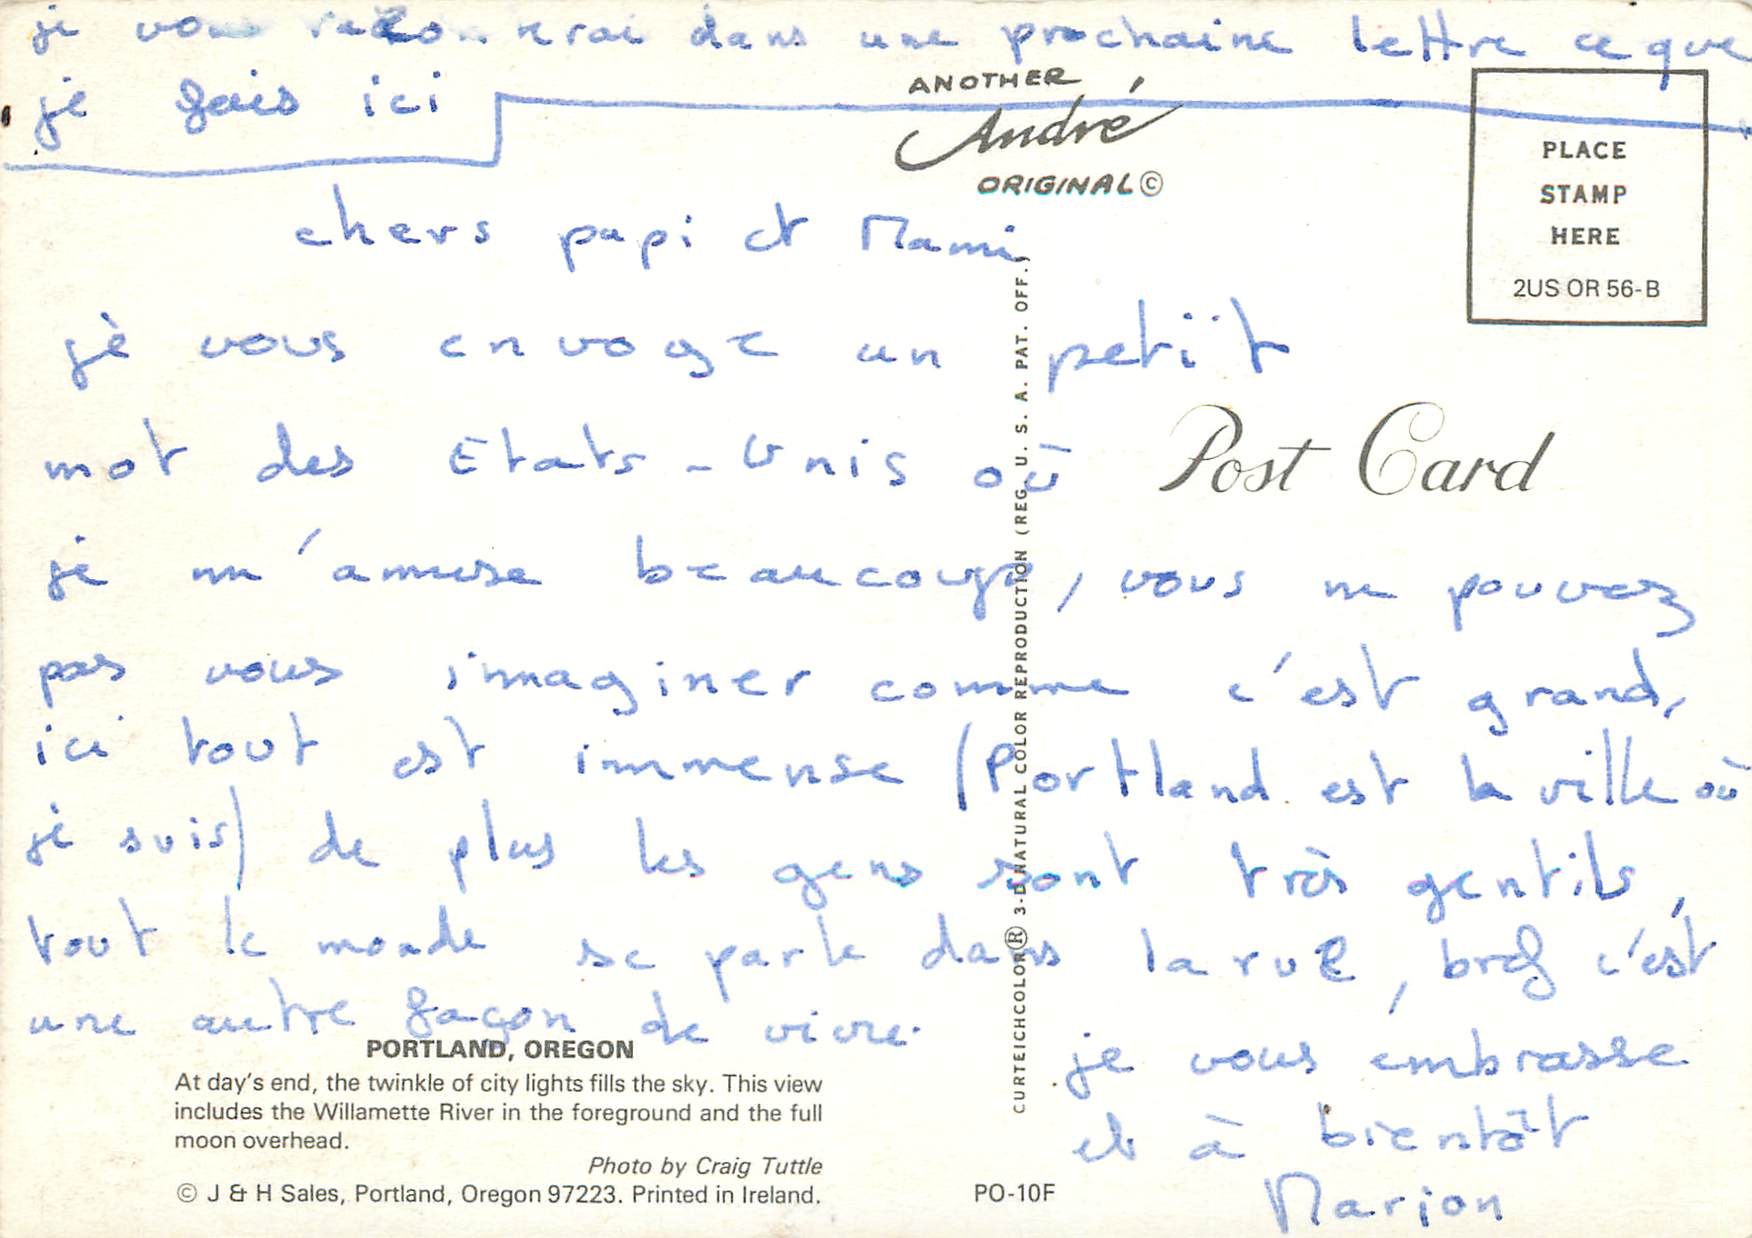 je vous raconterai dans une prochaine lettre ce que
je fais ici
ANOTHER
André
ORIGINAL©
PLACE
STAMP
HERE
2US OR 56-B
chers papi et Mami
je vous envoye un petiit
mot des Etats-Unis où
Post Card
je m'amuse beaucoup, vous ne pouvez
pas vous imaginer comme c'est grand,
ici tout est immense (Portland est la ville où
je suis) de plus les gens sont très gentils,
tout le monde se parle dans la rue, bref c'est
une autre façon de vivre.
je vous embrasse
et à bientôt
Marion
CURTEICHCOLOR® 3-D NATURAL COLOR REPRODUCTION (REG. U. S. A. PAT. OFF.)
PORTLAND, OREGON
At day's end, the twinkle of city lights fills the sky. This view
includes the Willamette River in the foreground and the full
moon overhead.
Photo by Craig Tuttle
© J & H Sales, Portland, Oregon 97223. Printed in Ireland.
PO-10F